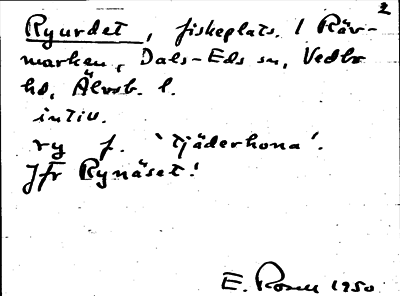 2
Ryurdet, fiskeplats. / Räv-
marken, Dals-Eds sn, Vedbo
hd, Älvsb. l.
intiv.
ry f. 'tjäderhona'.
Jfr Rynäset!
E. Rosell 1950